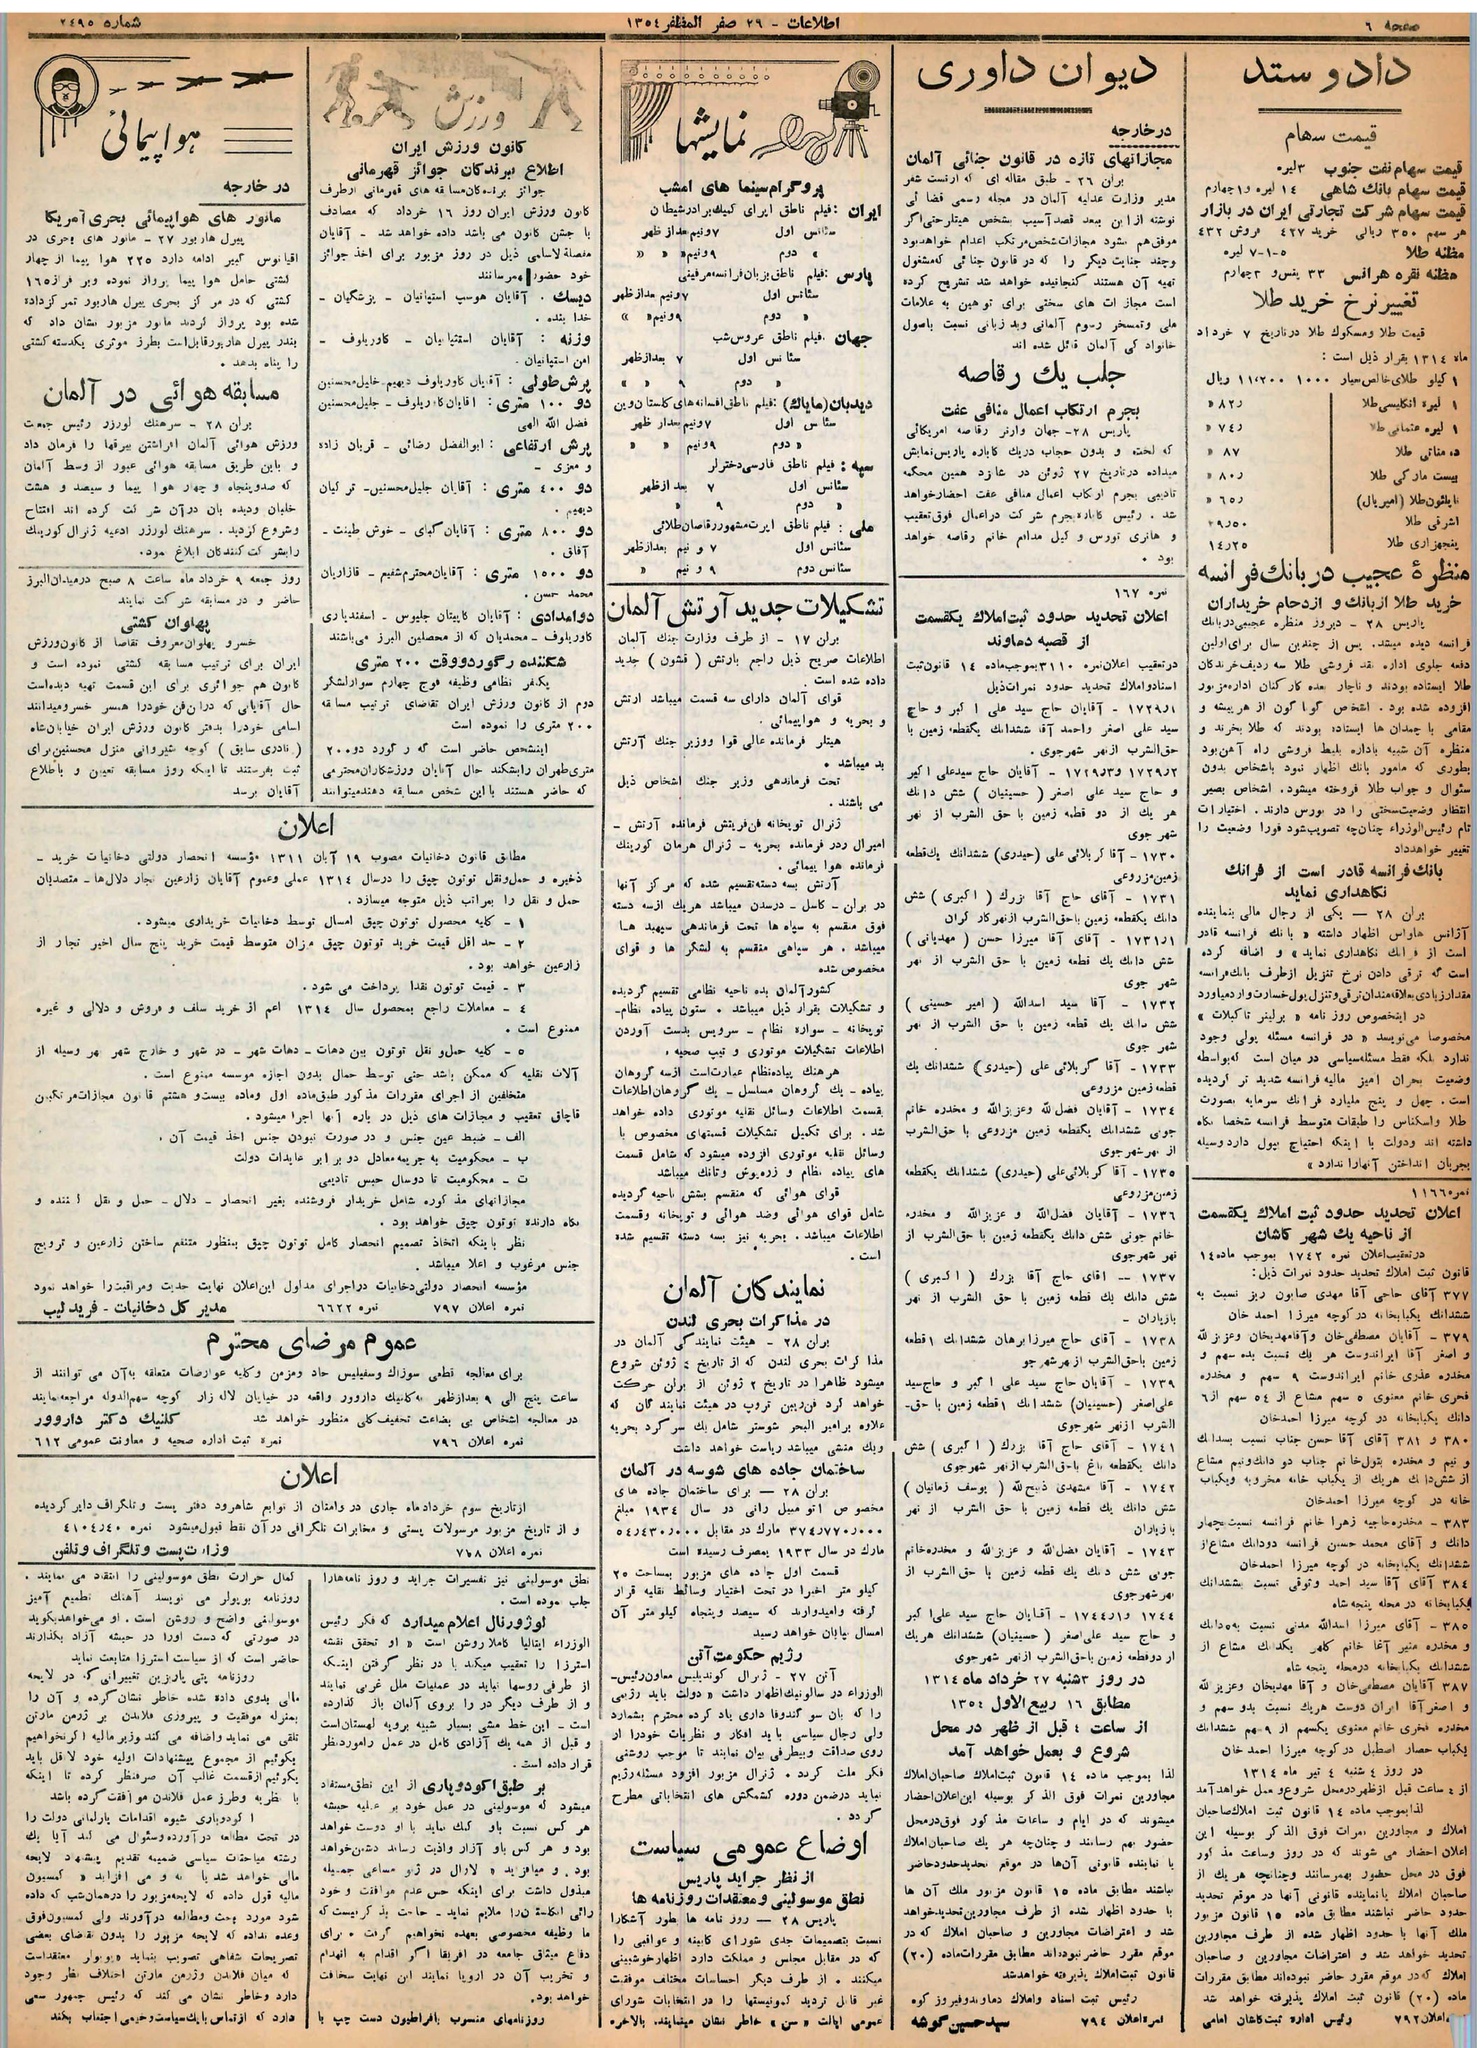 صفحه ٦
اطلاعات - ۲۹ صفر المظفر ۱۳۵٤
شماره ۲٤۹۵
داد و ستد
قیمت سهام
قیمت سهام نفت جنوب ۳ لیره
قیمت سهام بانک شاهی ۱٤ لیره و ۱ چهارم
قیمت سهام شرکت تجارتی ایران در بازار
هر سهم ۳۵۰ ریالی خرید ٤۲۷ فروش ٤۳۲
مظنه طلا ۵-۱-۷ لیره
مظنه نقره هر انس ۳۳ پنس و ۳ چهارم
تغییر نرخ خرید طلا
قیمت طلا و مسکوک طلا در تاریخ ۷ خرداد
ماه ۱۳۱٤ بقرار ذیل است :
۱ کیلو طلای خالص سیار ۱۰۰۰ ۱۱٬۲۰۰ ریال
۱ لیره انگلیسی طلا
۱ لیره عثمانی طلا
ده مناتی طلا ۸۷ «
بیست مارکی طلا
ناپلئون طلا (امپریال)
اشرفی طلا
پنجهزاری طلا ۱٤٫۲۵
منظرهٔ عجیب در بانک فرانسه
خرید طلا از بانک و ازدحام خریداران
پاریس ۲۸ - دیروز منظره عجیبی در بانک
فرانسه دیده میشد. پس از چندین سال برای اولین
دفعه جلوی اداره نقد فروشی طلا سه ردیف خرندگان
طلا ایستاده بودند و ناچار بعده کارکنان اداره مزبور
افزوده شده بود. اشخاص گوناگون از هر پیشه و
مقامی با چمدان ها ایستاده بودند که طلا بخرند و
منظره آن شبیه باداره بلیط فروشی راه آهن بود
بطوری که مامور بانک اظهار نمود باشخاص بدون
سئوال و جواب طلا فروخته میشود. اشخاص بصیر
انتظار وضعیت سختی را در بورس دارند. اختیارات
تام رئیس الوزراء چنانچه تصویب شود فورا وضعیت را
تغییر خواهد داد
بانک فرانسه قادر است از فرانک
نگاهداری نماید
بران ۲۸ — یکی از رجال مالی بنماینده
آژانس هاواس اظهار داشته « بانک فرانسه قادر
است از فرانک نگاهداری نماید » و اضافه کرده
است که ترقی دادن نرخ تنزیل از طرف بانک فرانسه
در اینخصوص روز نامه « برلینر تاگبلات »
مخصوصا می نویسد « در فرانسه مسئله پولی وجود
ندارد بلکه فقط مسئله سیاسی در میان است که بواسطه
وضعیت بحران آمیز مالیه فرانسه شدید تر گردیده
است. چهل و پنج ملیارد فرانک سرمایه بصورت
طلا و اسکناس را طبقات متوسط فرانسه شخصا نگاه
داشته اند و دولت با اینکه احتیاج بپول دارد وسیله
بجریان انداختن آنها را ندارد »
نمره ۱۱٦٦
اعلان تحدید حدود ثبت املاک یکقسمت
از ناحیه یک شهر کاشان
در تعقیب اعلان نمره ۱۷٤۲ بموجب ماده ۱٤
قانون ثبت املاک تحدید حدود نمرات ذیل:
۳۷۷ آقای حاجی آقا مهدی صابون ریز نسبت به
ششدانک یکبابخانه در کوچه میرزا احمد خان
۳۷۹ - آقایان مصطفی خان و آقا مهدیخان و عزیز الله
و اصغر آقا ایراندوست هر یک نسبت بده سهم و
مخدره عذری خانم ایراندوست ۹ سهم و مخدره
فخری خانم معنوی ۵ سهم مشاع از ۵٤ سهم از ٦
دانک یکبابخانه در کوچه میرزا احمدخان
۳۸۰ و ۳۸۱ آقای آقا حسن جناب نسبت بسه دانک
و نیم و مخدره بتول خانم جناب دو دانک و نیم مشاع
از شش دانک هریک از یکباب خانه مخروبه و یکباب
خانه در کوچه میرزا احمدخان
۳۸۳ - مخدره حاجیه زهرا خانم فرانسه نسبت بچهار
دانک و آقای محمد حسین فرانسه دو دانک مشاع از
ششدانک یکبابخانه در کوچه میرزا احمدخان
۳۸٤ آقای آقا سید احمد وثوقی نسبت بششدانک
یکبابخانه در محله پنجه شاه
۳۸۵ - آقای میرزا اسدالله مدنی نسبت به ۵ دانک
و مخدره منیر آغا خانم کلهر یکدانک مشاع از
ششدانک یکبابخانه در محله پنجه شاه
۳۸۷ آقایان مصطفی خان و آقا مهدیخان و عزیز الله
و اصغر آقا ایران دوست هریک نسبت بدو سهم و
مخدره فخری خانم معنوی یکسهم از ۹ سهم ششدانک
یکباب حصار اصطبل در کوچه میرزا احمد خان
در روز ٤ شنبه ٤ تیر ماه ۱۳۱٤
از ٤ ساعت قبل از ظهر در محل شروع و عمل خواهد آمد
لذا بموجب ماده ۱٤ قانون ثبت املاک صاحبان
املاک و مجاورین نمرات فوق الذکر بوسیله این
اعلان احضار می شوند که در روز و ساعت مذکور
فوق در محل حضور بهمرسانند و چنانچه هر یک از
صاحبان املاک یا نماینده قانونی آنها در موقع تحدید
حدود حاضر نباشند مطابق ماده ۱۵ قانون مزبور
ملک آنها با حدود اظهار شده از طرف مجاورین
تحدید خواهد شد و اعتراضات مجاورین و صاحبان
املاک که در موقع مقرر حاضر نبوده اند مطابق مقررات
ماده (۲۰) قانون ثبت املاک پذیرفته خواهد شد
نمره اعلان ۷۹۲ رئیس اداره ثبت کاشان امامی
دیوان داوری
در خارجه
مجازاتهای تازه در قانون جنائی آلمان
بران ۲٦ - طبق مقاله ای که ارنست شفر
مدیر وزارت عدلیه آلمان در مجله رسمی قضائی
نوشته از این ببعد قصد آسیب بشخص هیتلر حتی اگر
موفق هم نشود مجازات شخص مرتکب اعدام خواهد بود
و چند جنایت دیگر را که در قانون جنائی که مشغول
تهیه آن هستند گنجانیده خواهد شد تشریح کرده
است مجازات های سختی برای توهین به علامات
ملی و تمسخر رسوم آلمانی و بد زبانی نسبت باصول
خانوادگی آلمان قائل شده اند
جلب یک رقاصه
بجرم ارتکاب اعمال منافی عفت
پاریس ۲۸ - جهان وارنر رقاصه امریکائی
که لخت و بدون حجاب در یک کاباره پاریس نمایش
میداده در تاریخ ۲۷ ژوئن در شانزد همین محکمه
تادیبی بجرم ارتکاب اعمال منافی عفت احضار خواهد
شد. رئیس کاباره بجرم شرکت در اعمال فوق تعقیب
و هانری تورس وکیل مدافع خانم رقاصه خواهد
بود .
نمره ۱٦۷
اعلان تحدید حدود ثبت املاک یکقسمت
از قصبه دماوند
در تعقیب اعلان نمره ۳۱۱۰ بموجب ماده ۱٤ قانون ثبت
اسناد و املاک تحدید حدود نمرات ذیل
۱۷۲۹٫۱ - آقایان حاج سید علی اکبر و حاج
سید علی اصغر و احمد آقا ششدانک یکقطعه زمین با
حق الشرب از نهر شهر جوی .
۱۷۲۹٫۲ و ۱۷۲۹٫۳ - آقایان حاج سید علی اکبر
و حاج سید علی اصغر (حسینیان) شش دانک
هر یک از دو قطعه زمین با حق الشرب از نهر
شهر جوی
۱۷۳۰ - آقا کربلائی علی (حیدری) ششدانک یکقطعه
زمین مزروعی
۱۷۳۱ - آقای حاج آقا بزرک ( اکبری ) شش
دانک یکقطعه زمین با حق الشرب از نهر کار گران
۱۷۳۱٫۱ - آقای آقا میرزا حسن ( مهدیانی )
شش دانک یک قطعه زمین با حق الشرب از نهر
شهر جوی
۱۷۳۲ - آقا سید اسدالله ( امیر حسینی )
شش دانک یک قطعه زمین با حق الشرب از نهر
شهر جوی
۱۷۳۳ - آقا کربلائی علی (حیدری) ششدانک یک
قطعه زمین مزروعی
۱۷۳٤ - آقایان فضل الله و عزیز الله و مخدره خانم
جونی ششدانک یکقطعه زمین مزروعی با حق الشرب
از نهر شهر جوی
۱۷۳۵ - آقا کربلائی علی (حیدری) ششدانک یکقطعه
زمین مزروعی
۱۷۳٦ - آقایان فضل الله و عزیز الله و مخدره
خانم جونی شش دانک یکقطعه زمین با حق الشرب از
نهر شهر جوی
۱۷۳۷ — آقای حاج آقا بزرک ( اکبری )
شش دانک یک قطعه زمین با حق الشرب از نهر
بازیاران -
۱۷۳۸ - آقای حاج میرزا برهان ششدانک ۱ قطعه
زمین با حق الشرب از نهر شهر جو
۱۷۳۹ - آقایان حاج سید علی اکبر و حاج سید
علی اصغر (حسینیان) ششدانک ۱ قطعه زمین با حق-
الشرب از نهر شهر جوی
۱۷٤۱ - آقای حاج آقا بزرک ( اکبری ) شش
دانک یکقطعه باغ با حق الشرب از نهر شهر جوی
۱۷٤۲ - آقا مشهدی ذبیح الله ( یوسف زمانیان )
شش دانک یک قطعه زمین با حق الشرب از نهر
بازیاران
۱۷٤۳ - آقایان فضل الله و عزیز الله و مخدره خانم
جونی شش دانک یک قطعه زمین با حق الشرب از
نهر شهر جوی
۱۷٤٤ و ۱۷٤٤٫۱ - آقایان حاج سید علی اکبر
و حاج سید علی اصغر (حسینیان) ششدانک هر یک
از دو قطعه زمین با حق الشرب از نهر شهر جوی
در روز ۳ شنبه ۲۷ خرداد ماه ۱۳۱٤
مطابق ۱٦ ربیع الاول ۱۳۵٤
از ساعت ٤ قبل از ظهر در محل
شروع و بعمل خواهد آمد
لذا بموجب ماده ۱٤ قانون ثبت املاک صاحبان املاک
مجاورین نمرات فوق الذکر بوسیله این اعلان احضار
میشوند که در ایام و ساعات مذکور فوق در محل
حضور بهم رسانند و چنانچه هر یک صاحبان املاک
یا نماینده قانونی آن ها در موقع تحدید حدود حاضر
نباشند مطابق ماده ۱۵ قانون مزبور ملک آن ها
با حدود اظهار شده از طرف مجاورین تحدید خواهد
شد و اعتراضات مجاورین و صاحبان املاک که در
موقع مقرر حاضر نبوده اند مطابق مقررات ماده (۲۰)
قانون ثبت املاک پذیرفته خواهد شد
رئیس ثبت اسناد و املاک دماوند و فیروز کوه
نمره اعلان ۷۹٤ سید حسین گوشه
نمایشها
پروگرام سینما های امشب
ایران : فیلم ناطق ایرای کمیک برادر شیطان
سئانس اول ۷ و نیم بعد از ظهر
« دوم ۹ و نیم « «
پارس : فیلم ناطق بزبان فرانسه مرفینی
سئانس اول ۷ و نیم بعد از ظهر
« دوم ۹ و نیم « «
جهان . فیلم ناطق عروس شب
سئانس اول ۷ بعد از ظهر
« دوم ۹ « «
دیدبان (مایاک) : فیلم ناطق افسانه های گلستان وین
سئانس اول ۷ و نیم بعد از ظهر
« دوم ۹ و نیم « «
سپه : فیلم ناطق فارسی دختر لر
سئانس اول ۷ بعد از ظهر
« دوم ۹ « «
ملی : فیلم ناطق ایرت مشهور رقاصان طلائی
سئانس اول ۷ و نیم بعد از ظهر
سئانس دوم ۹ و نیم «
تشکیلات جدید آرتش آلمان
بران ۱۷ - از طرف وزارت جنک آلمان
اطلاعات صریح ذیل راجع بارتش ( قشون ) جدید
داده شده است .
قوای آلمان دارای سه قسمت میباشد ارتش
و بحریه و هواپیمائی .
هیتلر فرمانده عالی قوا و وزیر جنک آرتش
بد میباشد .
تحت فرماندهی وزیر جنک اشخاص ذیل
می باشند .
ژنرال توپخانه فن فریتش فرمانده آرتش -
امیرال ردر فرمانده بحریه - ژنرال هرمان گورینک
فرمانده هوا پیمائی .
آرتش بسه دسته تقسیم شده که مرکز آنها
در بران - کاسل - درسدن میباشد هریک از سه دسته
فوق منقسم به سپاه ها تحت فرماندهی سپهبد هـا
میباشد . هر سپاهی منقسم به لشکر ها و قوای
مخصوص شده
کشور آلمان بده ناحیه نظامی تقسیم گردیده
و تشکیلات بقرار ذیل میباشد . ستون پیاده نظام -
توپخانه - سواره نظام - سرویس بدست آوردن
اطلاعات تشکیلات موتوری و تیپ صحیه .
هر هنک پیاده نظام عبارت است از سه گروهان
پیاده - یک گروهان مسلسل - یک گروهان اطلاعات
بقسمت اطلاعات وسائل نقلیه موتوری داده خواهد
شد . برای تکمیل تشکیلات قسمتهای مخصوص با
وسائل نقلیه موتوری افزوده میشود که شامل قسمت
های پیاده نظام و زره پوش و تانک میباشد
قوای هوائی که منقسم بشش ناحیه گردیده
شامل قوای هوائی و ضد هوائی و توپخانه و قسمت
اطلاعات میباشد . بحریه نیز بسه دسته تقسیم شده
است .
نمایندگان آلمان
در مذاکرات بحری لندن
بران ۲۸ - هیئت نمایندگی آلمان در
مذاکرات بحری لندن که از تاریخ ٤ ژوئن شروع
میشود ظاهرا در تاریخ ۲ ژوئن از بران حرکت
خواهد کرد فن ریبن تروپ در هیئت نمایندگان که
علاوه بر امیر البحر شوستر شامل یک سر گرد بحریه
و یک منشی میباشد ریاست خواهد داشت
ساختمان جاده های شوسه در آلمان
بران ۲۸ — برای ساختمان جاده های
مخصوص اتومبیل رانی در سال ۱۹۳٤ مبلغ
۳۷٤٫۷۷۰٫۰۰۰ مارک در مقابل ۵٤٫٤۳۰٫۰۰۰
مارک در سال ۱۹۳۳ بمصرف رسیده است
قسمت اول جاده های مزبور بمساحت ۲۵
کیلو متر اخیرا در تحت اختیار وسائط نقلیه قرار
گرفته و امیدوارند که سیصد و پنجاه کیلو متر آن
امسال بپایان خواهد رسید
رژیم حکومت آتن
آتن ۲۷ - ژنرال کوندیلیس معاون رئیس-
الوزراء در سالونیک اظهار داشت « دولت باید رژیمی
را که بان سو گند وفا داری یاد کرده محترم بشمارد
ولی رجال سیاسی باید افکار و نظریات خود را از
روی صداقت و بیطرفی بیان نمایند تا موجب روشنی
فکر ملت گردد . ژنرال مزبور افزود مسئله رژیم
نباید در ضمن دوره کشمکش های انتخاباتی مطرح
گردد .
اوضاع عمومی سیاست
از نظر جراید پاریس
نطق موسولینی و معتقدات روزنامه ها
پاریس ۲۸ — روز نامه ها بطور آشکارا
نسبت بتصمیمات جدی شورای کابینه و عواقبی را
که در مقابل مجلس و مملکت دارد اظهار خوشبینی
میکنند . از طرف دیگر احساسات مختلف موفقیت
غیر قابل تردید کمونیستها را در انتخابات شورای
عمومی ایالت « سن » خاطر نشان مینمایند. بالاخره
ورزش
کانون ورزش ایران
اطلاع ببرندگان جوائز قهرمانی
جوائز برندگان مسابقه های قهرمانی از طرف
کانون ورزش ایران روز ۱٦ خرداد که مصادف
با جشن کانون می باشد داده خواهد شد - آقایان
مفصلة لاسامی ذیل در روز مزبور برای اخذ جوائز
خود حضور بهمرسانند
دیسک . آقایان هوسپ استپانیان - پزشگیان -
خدا بنده .
وزنه : آقایان استپانیان - کاوریلوف -
امن استپانیان.
پرش طولی : آقایان کاوریلوف دیهیم خلیل محسنین
دو ۱۰۰ متری : آقایان کاوریلوف - جلیل محسنین
فضل الله الهی
پرش ارتفاعی : ابوالفضل رضائی - قربان زاده
و معزی -
دو ٤۰۰ متری : آقایان جلیل محسنین - ترکیان
دیهیم .
دو ۸۰۰ متری : آقایان گبای - خوش طینت -
آفاق .
دو ۱۵۰۰ متری : آقایان محترم شفیع - قازاریان
محمد حسن .
دو امدادی : آقایان کاپیتان جلیوس - اسفندیاری
کاوریلوف - محمدیان که از محصلین البرز می باشند
شکننده رگورد و وقت ۲۰۰ متری
یکنفر نظامی وظیفه فوج چهارم سوار لشگر
دوم از کانون ورزش ایران تقاضای ترتیب مسابقه
۲۰۰ متری را نموده است
اینشخص حاضر است که رگورد دو ۲۰۰
متری طهران را بشکند حال آقایان ورزشکاران محترمی
که حاضر هستند با این شخص مسابقه دهند میتوانند
هوا پیمائی
در خارجه
مانور های هواپیمائی بحری آمریکا
پیرل هاربور ۲۷ - مانور های بحری در
اقیانوس کبیر ادامه دارد ۲۲۵ هوا پیما از چهار
کشتی حامل هوا پیما پرواز نموده و بر فراز ۱٦۵
کشتی که در مرکز بحری پیرل هاربور تمرکز داده
شده بود پرواز کردند مانور مزبور نشان داد که
بندر پیرل هاربور قابل است بطرز موثری یکدسته کشتی
را پناه بدهد .
مسابقه هوائی در آلمان
بران ۲۸ - سرهنک لورزر رئیس جمعیت
ورزش هوائی آلمان افراشتن بیرقها را فرمان داد
و باین طریق مسابقه هوائی عبور از وسط آلمان
که صد و پنجاه و چهار هوا پیما و سیصد و هشت
خلبان و دیده بان در آن شرکت کرده اند افتتاح
و شروع گردید . سرهنک لورزر ادعیه ژنرال گورینک
را بشرکت کنندگان ابلاغ نمود.
روز جمعه ۹ خرداد ماه ساعت ۸ صبح در میدان البرز
حاضر و در مسابقه شرکت نمایند
پهلوان کشتی
خسرو پهلوان معروف تقاضا از کانون ورزش
ایران برای ترتیب مسابقه کشتی نموده است و
کانون هم جوائزی برای این قسمت تهیه دیده است
حال آقایانی که در این فن خود را همسر خسرو میدانند
اسامی خود را بدفتر کانون ورزش ایران خیابان شاه
(نادری سابق) کوچه شیروانی منزل محسنین برای
ثبت بفرستند تا اینکه روز مسابقه تعیین و باطلاع
آقایان برسد
اعلان
مطابق قانون دخانیات مصوب ۱۹ آبان ۱۳۱۱ مؤسسه انحصار دولتی دخانیات خرید -
ذخیره و حمل و نقل توتون چپق را در سال ۱۳۱٤ عملی و عموم آقایان زارعین تجار دلال ها - متصدیان
حمل و نقل را بمراتب ذیل متوجه میسازد .
۱ - کلیه محصول توتون چپق امسال توسط دخانیات خریداری میشود .
۲ - حد اقل قیمت خرید توتون چپق میزان متوسط قیمت خرید پنج سال اخیر تجار از
زارعین خواهد بود .
۳ - قیمت توتون نقدا پرداخت می شود .
٤ - معاملات راجع بمحصول سال ۱۳۱٤ اعم از خرید سلف و فروش و دلالی و غیره
ممنوع است .
۵ - کلیه حمل و نقل توتون بین دهات - دهات شهر - در شهر و خارج شهر بهر وسیله از
آلات نقلیه که ممکن باشد حتی توسط حمال بدون اجازه موسسه ممنوع است .
متخلفین از اجرای مقررات مذکور طبق ماده اول و ماده بیست و هشتم قانون مجازات مرتکبین
قاچاق تعقیب و مجازات های ذیل در باره آنها اجرا میشود .
الف - ضبط عین جنس و در صورت نبودن جنس اخذ قیمت آن .
ب - محکومیت به جریمه معادل دو برابر عایدات دولت
ت - محکومیت تا دو سال حبس تادیبی
مجازاتهای مذکوره شامل خریدار فروشنده بغیر انحصار - دلال - حمل و نقل کننده و
نگاه دارنده توتون چپق خواهد بود .
نظر باینکه اتخاذ تصمیم انحصار کامل توتون چپق بمنظور متنعم ساختن زارعین و ترویج
جنس مرغوب و اعلا میباشد .
مؤسسه انحصار دولتی دخانیات در اجرای مدلول این اعلان نهایت جدیت و مراقبت را خواهد نمود
نمره اعلان ۷۹۷ نمره ٦٦۲۲ مدیر کل دخانیات - فرید لیب
عموم مرضای محترم
برای معالجه قطعی سوزاک و سفیلیس حاد و مزمن و کلیه عوارضات متعلقه به آن می توانند از
ساعت پنج الی ۹ بعد از ظهر به کلنیک داروور واقعه در خیابان لاله زار کوچه سهم الدوله مراجعه نمایند
در معالجه اشخاص بی بضاعت تخفیف کلی منظور خواهد شد کلنیک دکتر داروور
نمره اعلان ۷۹٦ نمره ثبت اداره صحیه و معاونت عمومی ٦۱۲
اعلان
از تاریخ سوم خرداد ماه جاری در دامغان از توابع شاهرود دفتر پست و تلگراف دایر گردیده
و از تاریخ مزبور مرسولات پستی و مخابرات تلگرافی در آن نقط قبول میشود نمره ٤۱۰٤٫٤۰
نمره اعلان ۷٦۸ وزارت پست و تلگراف و تلفن
نطق موسولینی نیز تفسیرات جراید و روز نامه ها را
جلب نموده است .
لوژورنال اعلام میدارد که فکر رئیس
الوزراء ایتالیا کاملا روشن است « او تحقق نقشه
استرزا را تعقیب میکند با در نظر گرفتن اینکه
از طرفی روسها نباید در عملیات ملل غربی نمایند
و از طرف دیگر در را بروی آلمان باز گذارده
است - این خط مشی بسیار شبیه برویه لهستان است
و قبل از همه یک آزادی کامل در عمل را مورد نظر
قرار داده است .
بر طبق اکودوپاری از این نطق مستفاد
میشود که موسولینی در عمل خود بر علیه حبشه
هر کس نسبت باو کمک نماید با او دوست خواهد
بود و هر کس باو آزار و اذیت رساند دشمن خواهد
بود . و میافزاید « لاوال در ژنو مساعی جمیله
مبذول داشت برای اینکه حس عدم موافقت و خود
رائی انگلستان را ملایم نماید - حاجت بذکر نیست که
ما وظیفه مخصوصی بعهده نخواهیم گرفت . برای
دفاع میثاق جامعه در افریقا اگر اقدام به انهدام
و تخریب آن در اروپا نمایند این نهایت سخافت
خواهد بود.
روزنامهای منسوب بافراطیون دست چپ با
کمال حرارت نطق موسولینی را انتقاد می نمایند .
روزنامه پوپولر می نویسد آهنگ تطمیع آمیز
موسولینی واضح و روشن است . او می خواهد بگوید
در صورتی که دست او را در حبشه آزاد بگذارند
حاضر است که از سیاست استرزا متابعت نماید
روزنامه پتی پاریزین تغییراتی که در لایحه
مالی بدوی داده شده خاطر نشان کرده و آن را
بمنزله موفقیت و پیروزی فلاندن بر ژرمن مارتن
تلقی می نماید و اضافه می کند وزیر مالیه اگر نخواهیم
بگوئیم از مجموع پیشنهادات اولیه خود لا اقل باید
بگوئیم از قسمت غالب آن صرفنظر کرده تا اینکه
با نظریه و طرز عمل فلاندن موافقت کرده باشد
اکودوپاری شیوه اقدامات پارلمانی دولت را
در تحت مطالعه در آورده و سئوال می کند آیا یک
رشته مباحثات سیاسی ضمیمه تقدیم پیشنهاد لایحه
مالی خواهد شد یا نه و می افزاید « کمسیون
مالیه قول داده که لایحه مزبور را در همان شب که داده
شود مورد بحث و مطالعه در آورند ولی کمسیون فوق
وعده نداده که لایحه مزبور را بدون تقاضای بعضی
تصریحات شفاهی تصویب بنماید » پوپولر معتقد است
که میان فلاندن و ژرمن مارتن اختلاف نظر وجود
دارد و خاطر نشان می کند که رئیس جمهور سعی
دارد که از تماس با یک سیاست وخیمی اجتناب بکند